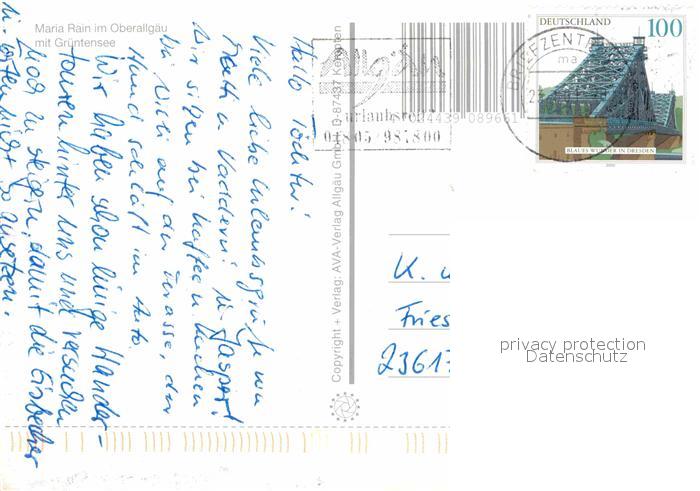 Maria Rain im Oberallgäu
mit Grüntensee
Hallo Töchter!
Viele liebe Urlaubsgrüße von
Mutti u. Vaddern! u. Jasper!
Wir sitzen bei Kaffee u. Kuchen
bei auf der Terrasse, der
Hund schläft im Auto.
Wir haben schon einige Wander-
touren hinter uns und versuchen
zu steigern, damit die Eisbecher
nicht so ansetzen.
Copyright + Verlag: AVA-Verlag Allgäu GmbH, D-87437 Kempten
Allgäu
urlaubsreif?
01805/987800
4439 089661
BRIEFZENT
ma
DEUTSCHLAND 100
BLAUES WUNDER IN DRESDEN
2000
K. u
Fries
23617
privacy protection
Datenschutz